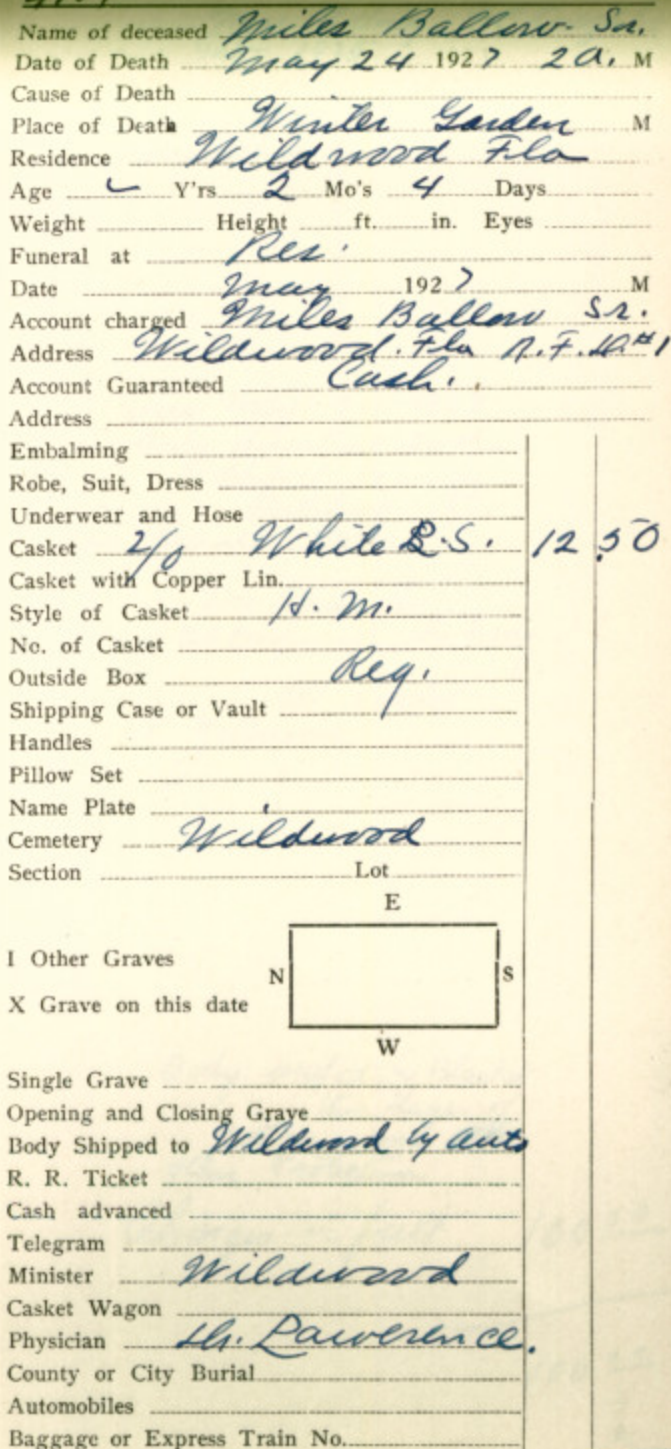 Name of deceased Miles Ballow Sr.
Date of Death May 24 1927 2 a. M
Cause of Death
Place of Death Winter Garden M
Residence Wildwood Fla
Age Y'rs 2 Mo's 4 Days
Weight Height ft. in. Eyes
Funeral at Res.
Date May 1927 M
Account charged Miles Ballow Sr.
Address Wildwood. Fla R. F. D #1
Account Guaranteed Cash.
Address
Embalming
Robe, Suit, Dress
Underwear and Hose
Casket 2/0 White S. 12.50
Casket with Copper Lin.
Style of Casket H. M.
No. of Casket
Outside Box Reg.
Shipping Case or Vault
Handles
Pillow Set
Name Plate
Cemetery Wildwood
Section Lot
E
I Other Graves
N S
X Grave on this date
W
Single Grave
Opening and Closing Grave
Body Shipped to Wildwood by auto
R. R. Ticket
Cash advanced
Telegram
Minister Wildwood
Casket Wagon
Physician Dr. Lawerence.
County or City Burial
Automobiles
Baggage or Express Train No.